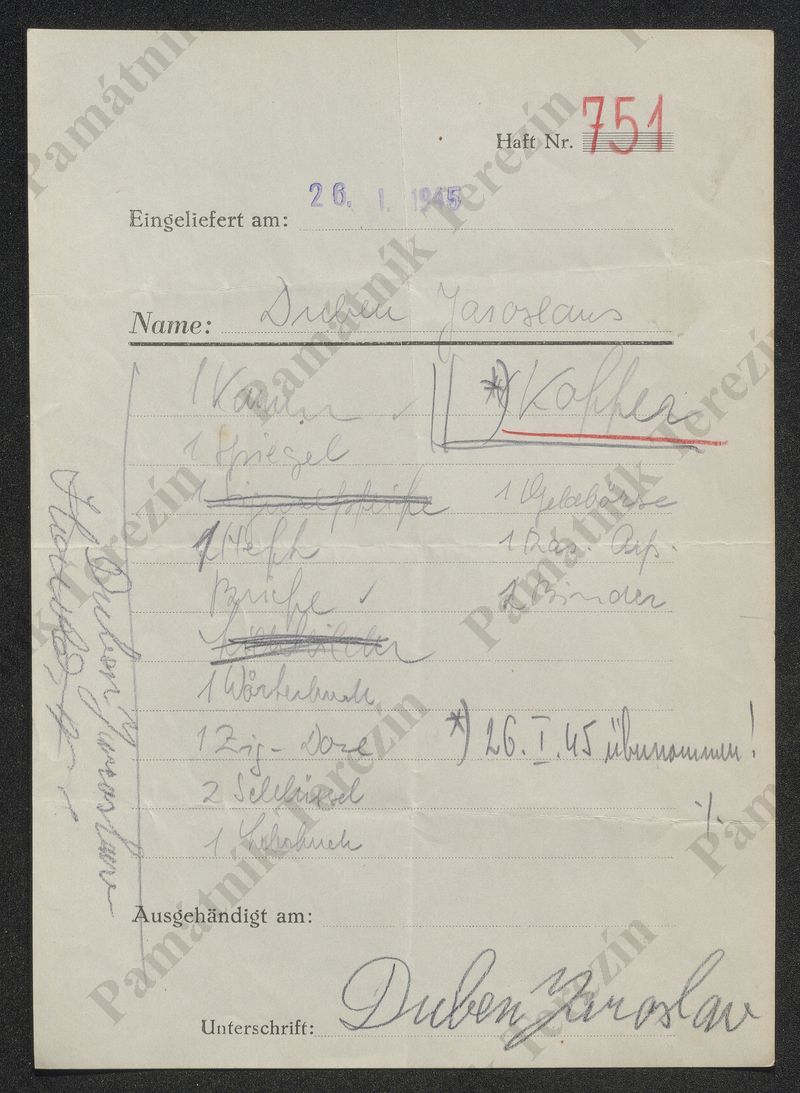 Haft Nr. 751
Eingeliefert am: 26. I. 1945
Name: Duben Jaroslaus
1 Kamm *) Koffer
1 Spiegel
1 Geldbörse
1 Heft 1 Ras. Ap.
Briefe 1 Binder
1 Wörterbuch
1 Zig-Dose *) 26. I. 45 übernommen!
2 Schlüssel ./.
1 Lehrbuch
Ausgehändigt am:
Unterschrift: Duben Jaroslav
Duben Jaroslav
Památník Terezín
Památník Terezín
Památník Terezín
Památník Terezín
Památník Terezín